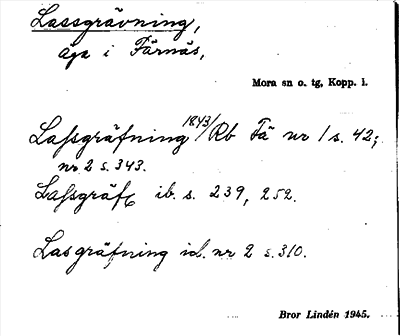 Lassgrävning,
äga i Färnäs,
Mora sn o. tg, Kopp. l.
Lafsgräfning 1843/Rb Fä nr 1 s. 42;
nr 2 s. 343.
Lafsgräf ib. s. 239, 252.
Lasgräfning id. nr 2 s. 310.
Bror Lindén 1945.